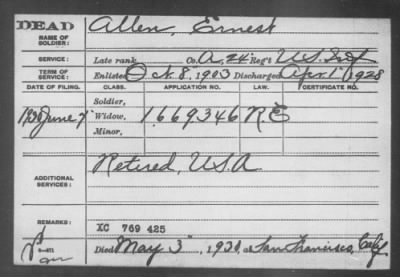 DEAD
NAME OF SOLDIER: Allen, Ernest
SERVICE: Late rank, Co. A, 24 Reg't U.S. Inf
TERM OF SERVICE: Enlisted Oct. 8, 1903 Discharged Apr. 1, 1928
DATE OF FILING. CLASS. APPLICATION NO. LAW. CERTIFICATE NO.
Soldier,
1930 June 7 Widow, 1,669,346 R.E
Minor,
ADDITIONAL SERVICES: Retired, U.S.A.
REMARKS: XC 769 425
Died May 3, 1930, at San Francisco, Calif